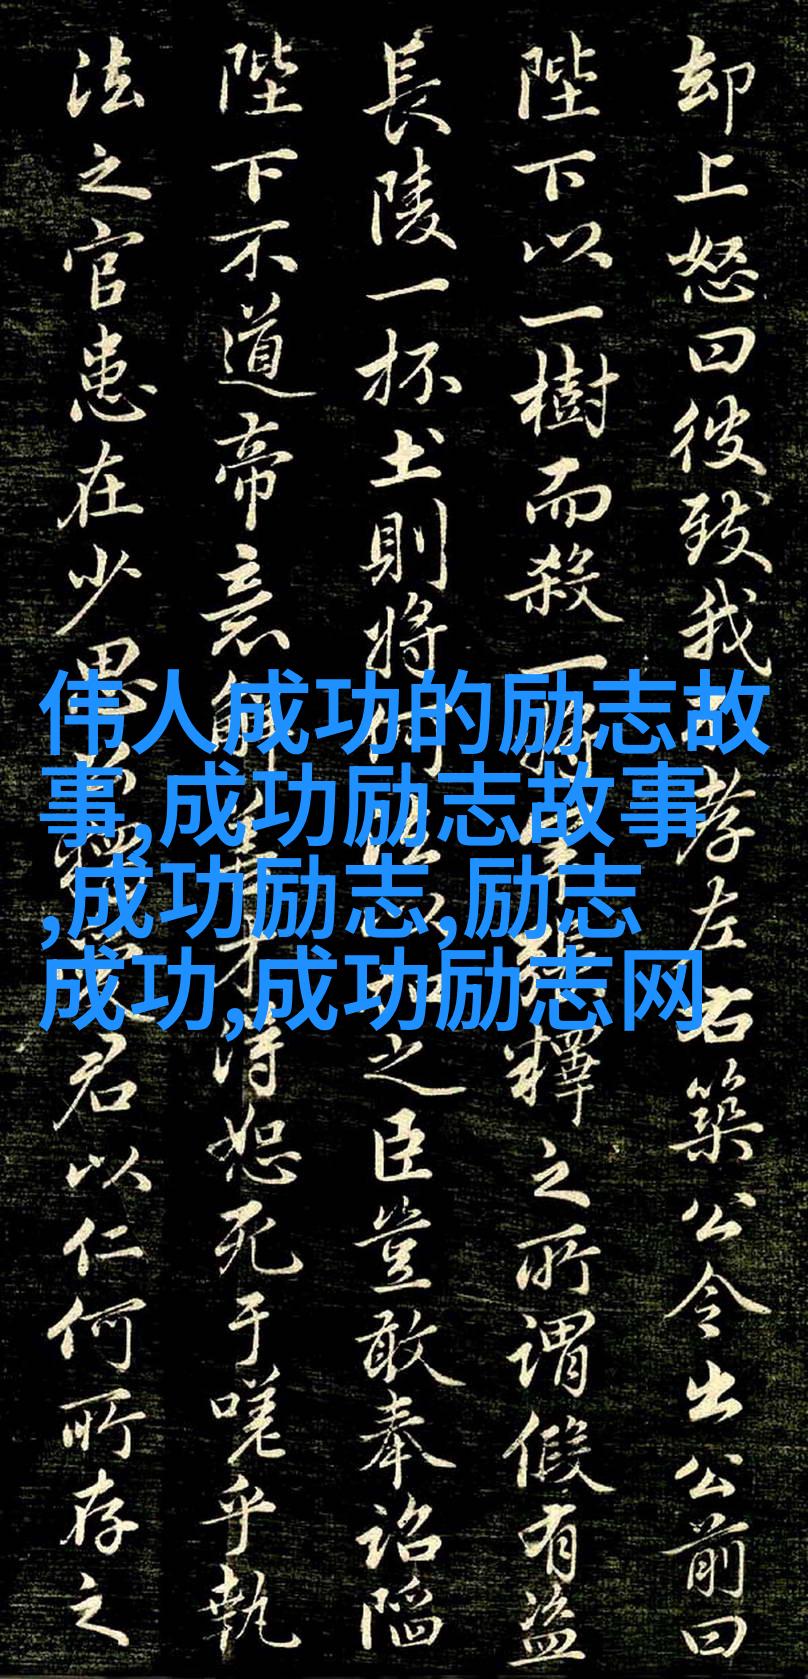 却上怒曰彼致我不孝左右築公令出公前曰
陛下以一樹而殺一釋之所謂假有盜
長陵一杯土則將何以加之臣豈敢奉詔陷
陛下不道帝意解才得恕死于嗟乎執
法之官患在少恩君以仁何所存之
伟人成功的励志故
事,成功励志故事
,成功励志,励志
成功,成功励志网